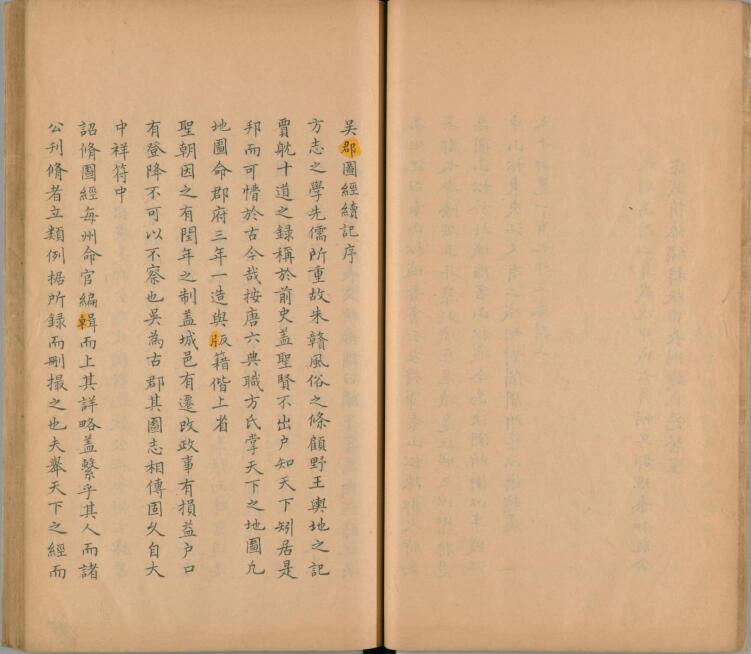 吳郡圖經續記序
方志之學先儒所重故朱贛風俗之條顧野王輿地之記
賈躭十道之録稱於前史蓋聖賢不出户知天下矧居是
邦而可懵於古今哉按唐六典職方氏掌天下之地圖凡
地圖命郡府三年一造與版籍偕上省
聖朝因之有閏年之制蓋城邑有遷改政事有損益户口
有登降不可以不察也吳為古郡其圖志相傳固久自大
中祥符中
詔脩圖經每州命官編輯而上其詳略蓋繫乎其人而諸
公刊脩者立類例㨿所録而刪撮之也夫舉天下之經而